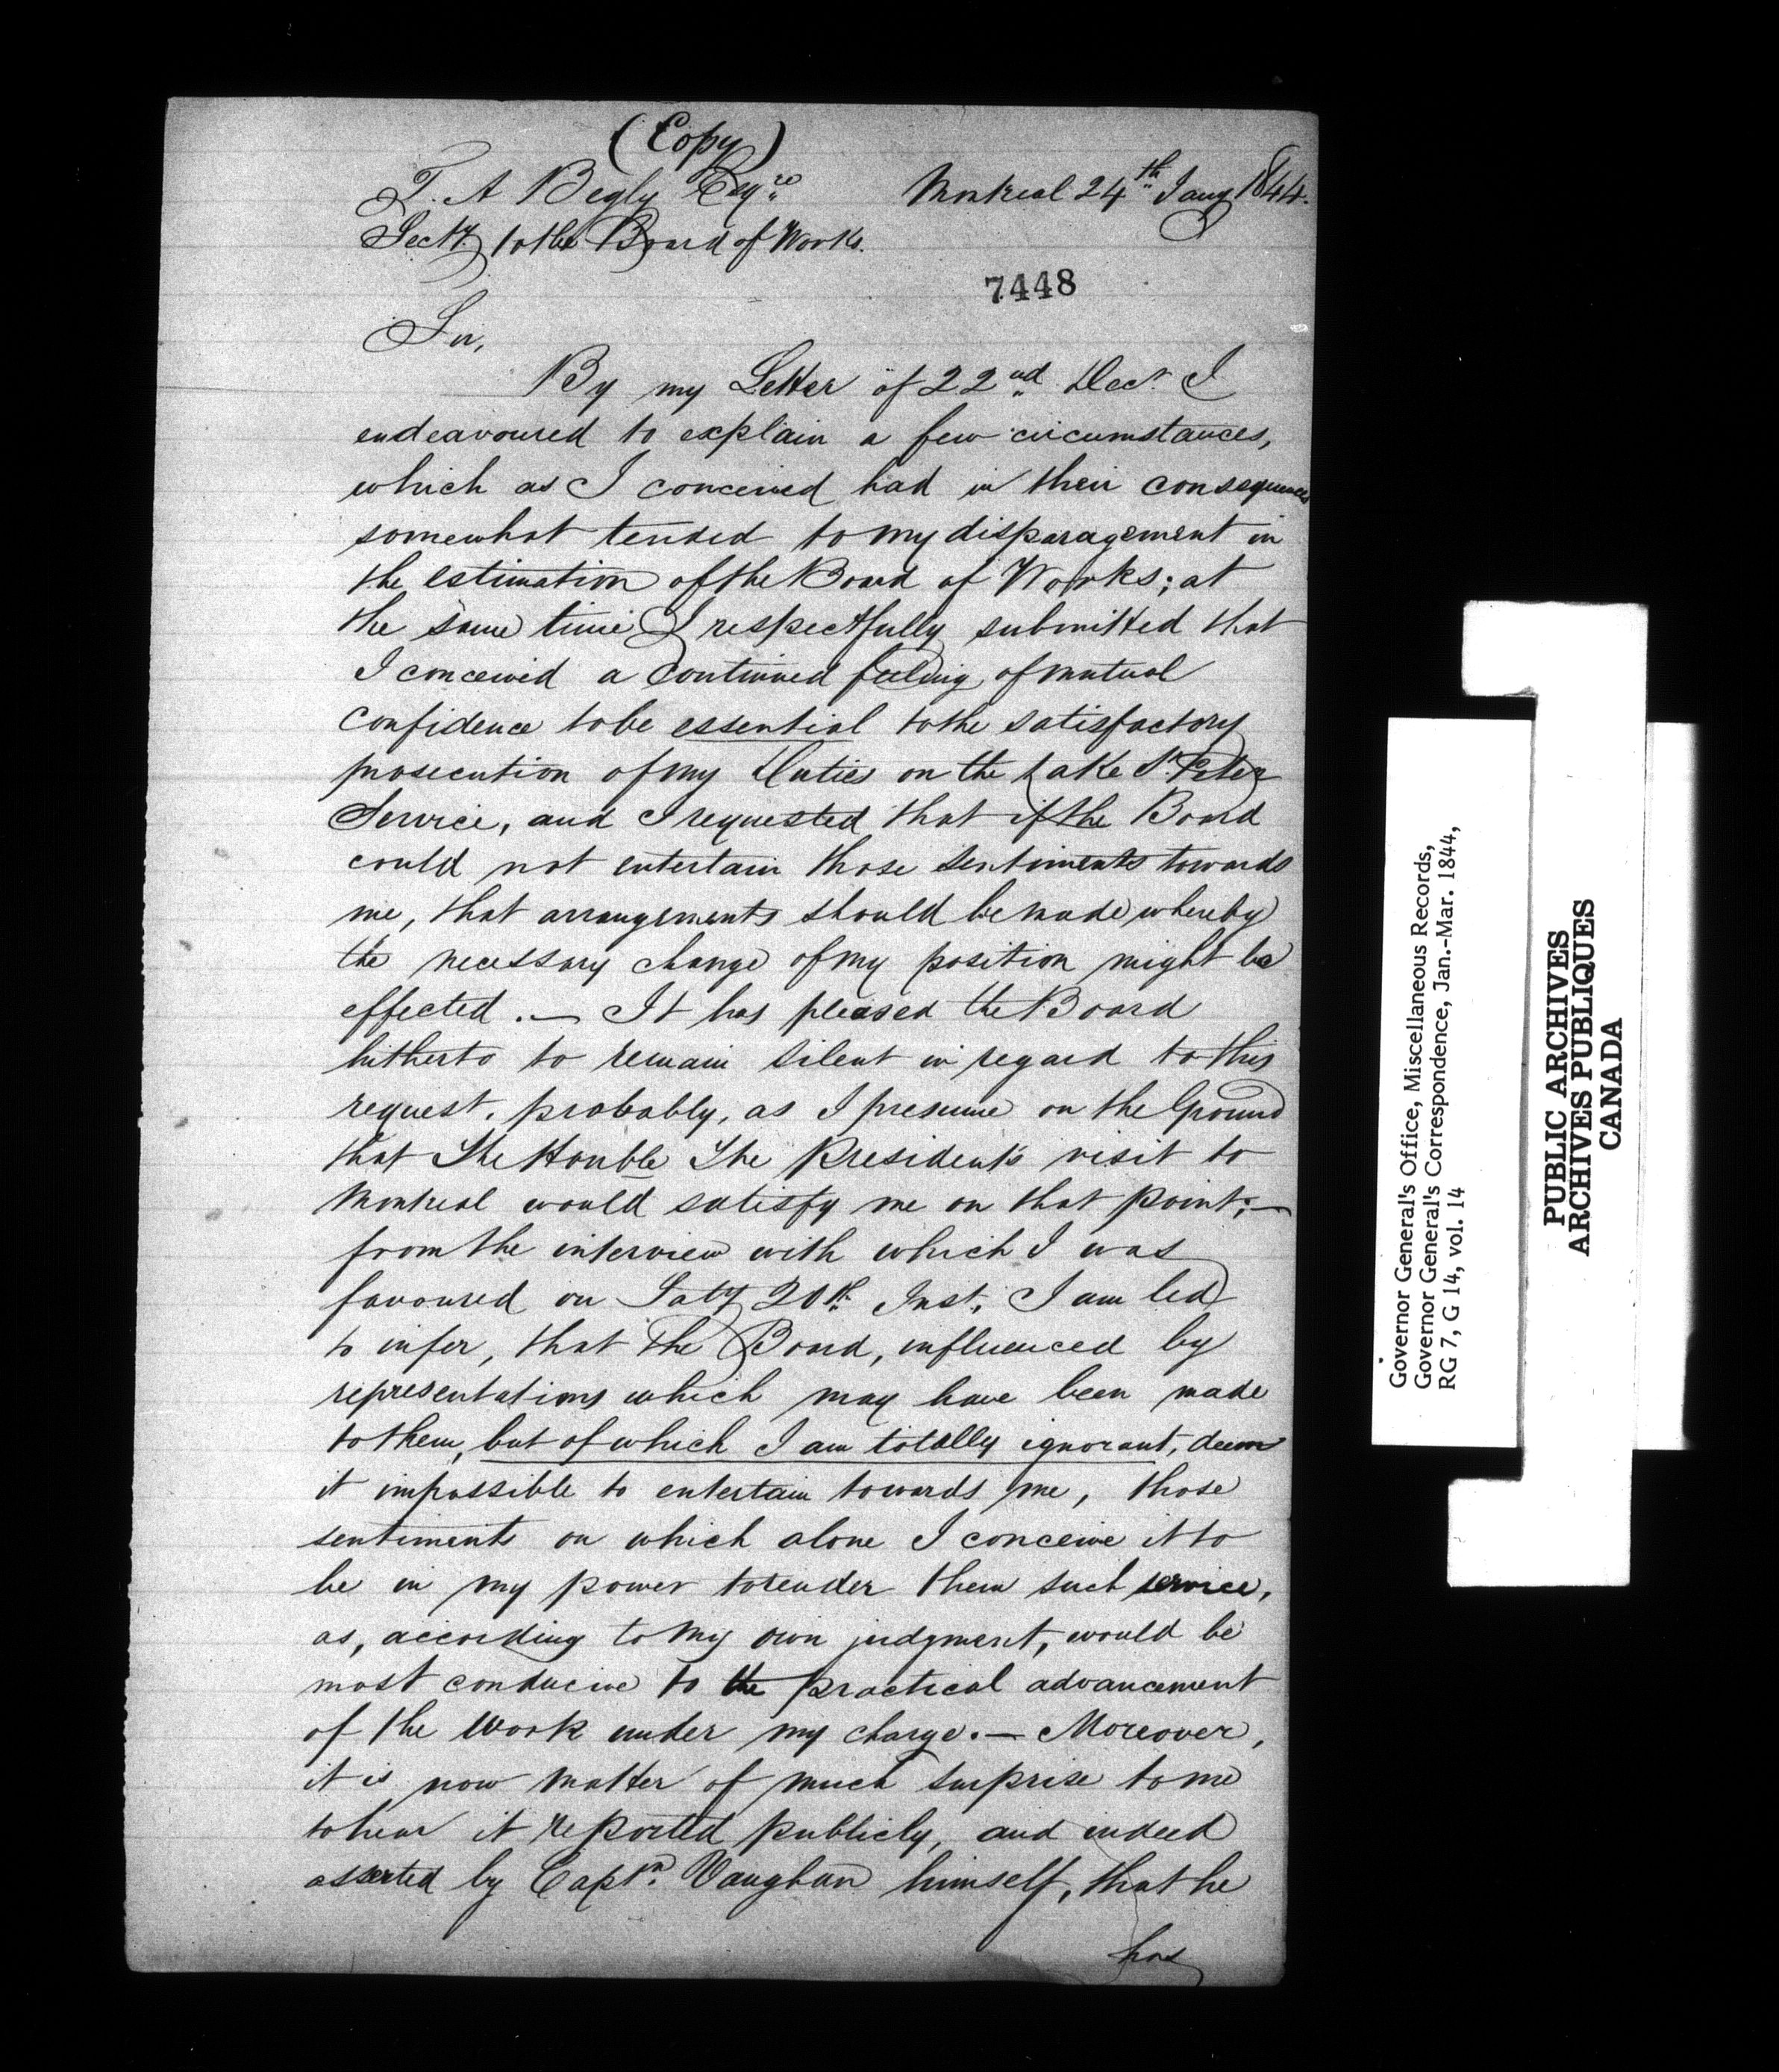 (Copy)
T. A Begly Esqre
Montreal 24th Jany 1844.
Secty to the Board of Works.
7448
Sir,
By my Letter of 22nd Decr. I
endeavoured to explain a few circumstances,
which as I conceived had in their consequences
somewhat tended to my disparagement in
the estimation of the Board of Works; at
the same time I respectfully submitted that
I conceived a continued feeling of mutual
confidence to be essential to the satisfactory
prosecution of my Duties on the Lake St. Peter
Service, and I requested that if the Board
could not entertain those sentiments towards
me, that arrangements should be made whereby
the necessary change of my position might be
effected. — It has pleased the Board
hitherto to remain silent in regard to this
request. probably, as I presume on the Ground
that The Honble The President's visit to
Montreal would satisfy me on that point; —
from the interview with which I was
favoured on Saty 20th Inst, I am led
to infer, that the Board, influenced by
representations which may have been made
to them, but of which I am totally ignorant, deem
it impossible to entertain towards me, those
sentiments on which alone I conceive it to
be in my power to render them such service,
as, according to my own judgment, would be
most conducive to the practical advancement
of the Work under my charge. — Moreover,
it is now matter of much surprise to me
to hear it reported publicly, and indeed
asserted by Captn. Vaughan himself, that he
has
Governor General's Office, Miscellaneous Records,
Governor General's Correspondence, Jan.-Mar. 1844,
RG 7, G 14, vol. 14
PUBLIC ARCHIVES
ARCHIVES PUBLIQUES
CANADA